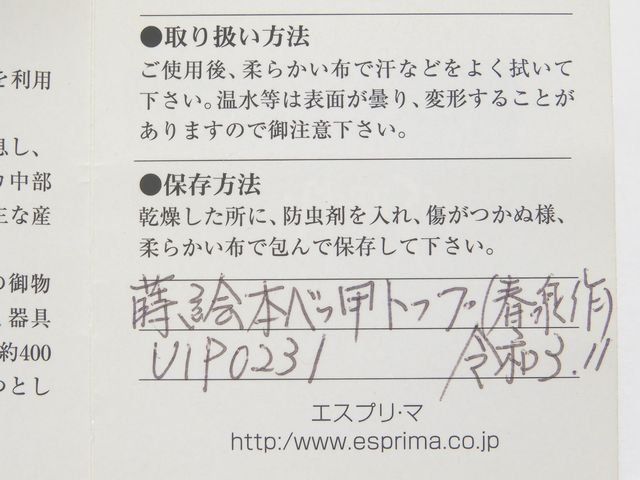 を利用
息し、
中部
正な産
の御物
、器具
約400
つとし
●取り扱い方法
ご使用後、柔らかい布で汗などをよく拭いて
下さい。温水等は表面が曇り、変形することが
ありますので御注意下さい。
●保存方法
乾燥した所に、防虫剤を入れ、傷がつかぬ様、
柔らかい布で包んで保存して下さい。
蒔絵本べっ甲トップ(春泉作)
VIP0231 令和3.11
エスプリ・マ
http://www.esprima.co.jp